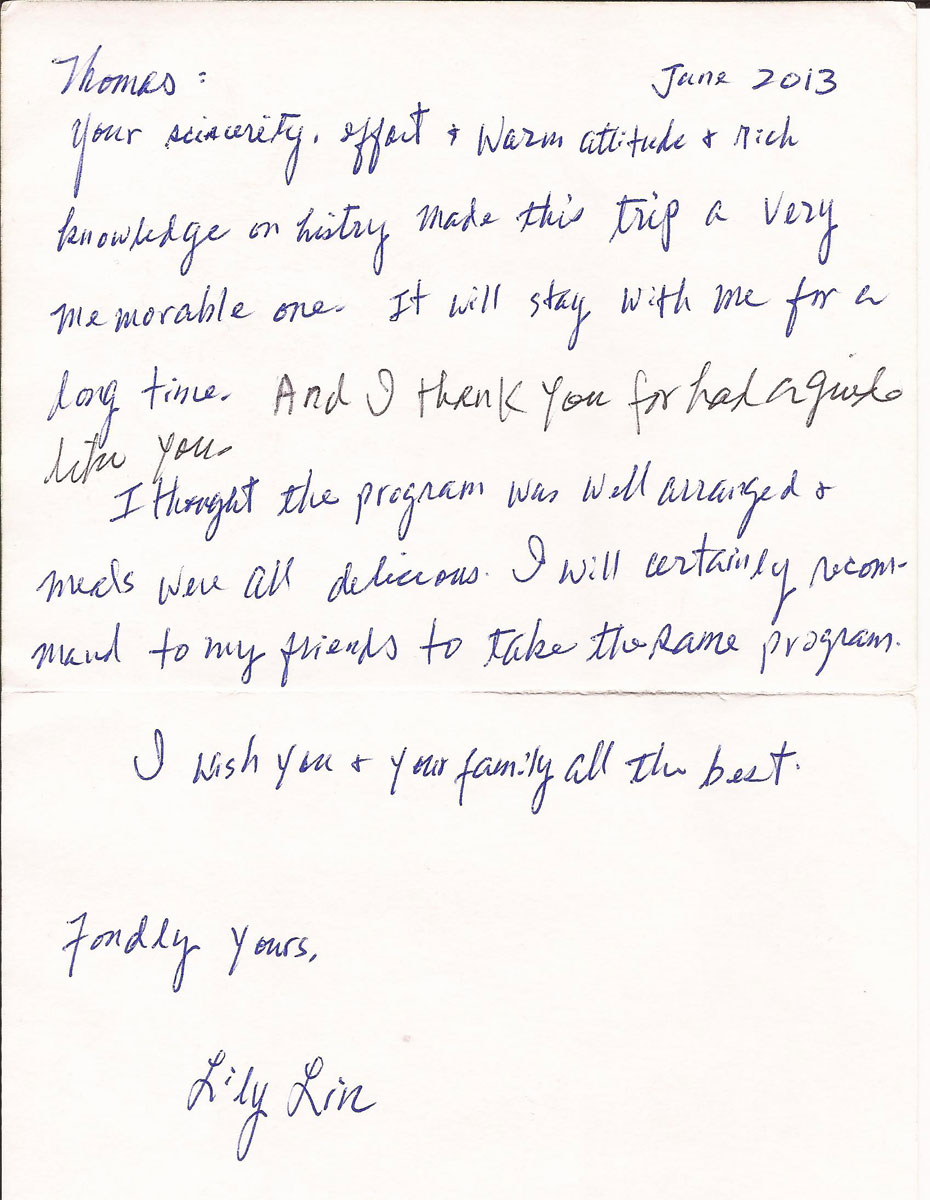 Thomas: June 2013
Your sincerity, effort + warm attitude + rich
knowledge on histry made this trip a very
memorable one. It will stay with me for a
long time. And I thank you for had a guide
like you.
I thought the program was well arranged +
meals were all delicious. I will certainly recom-
mand to my friends to take the same program.
I wish you + your family all the best.
Fondly yours,
Lily Lin